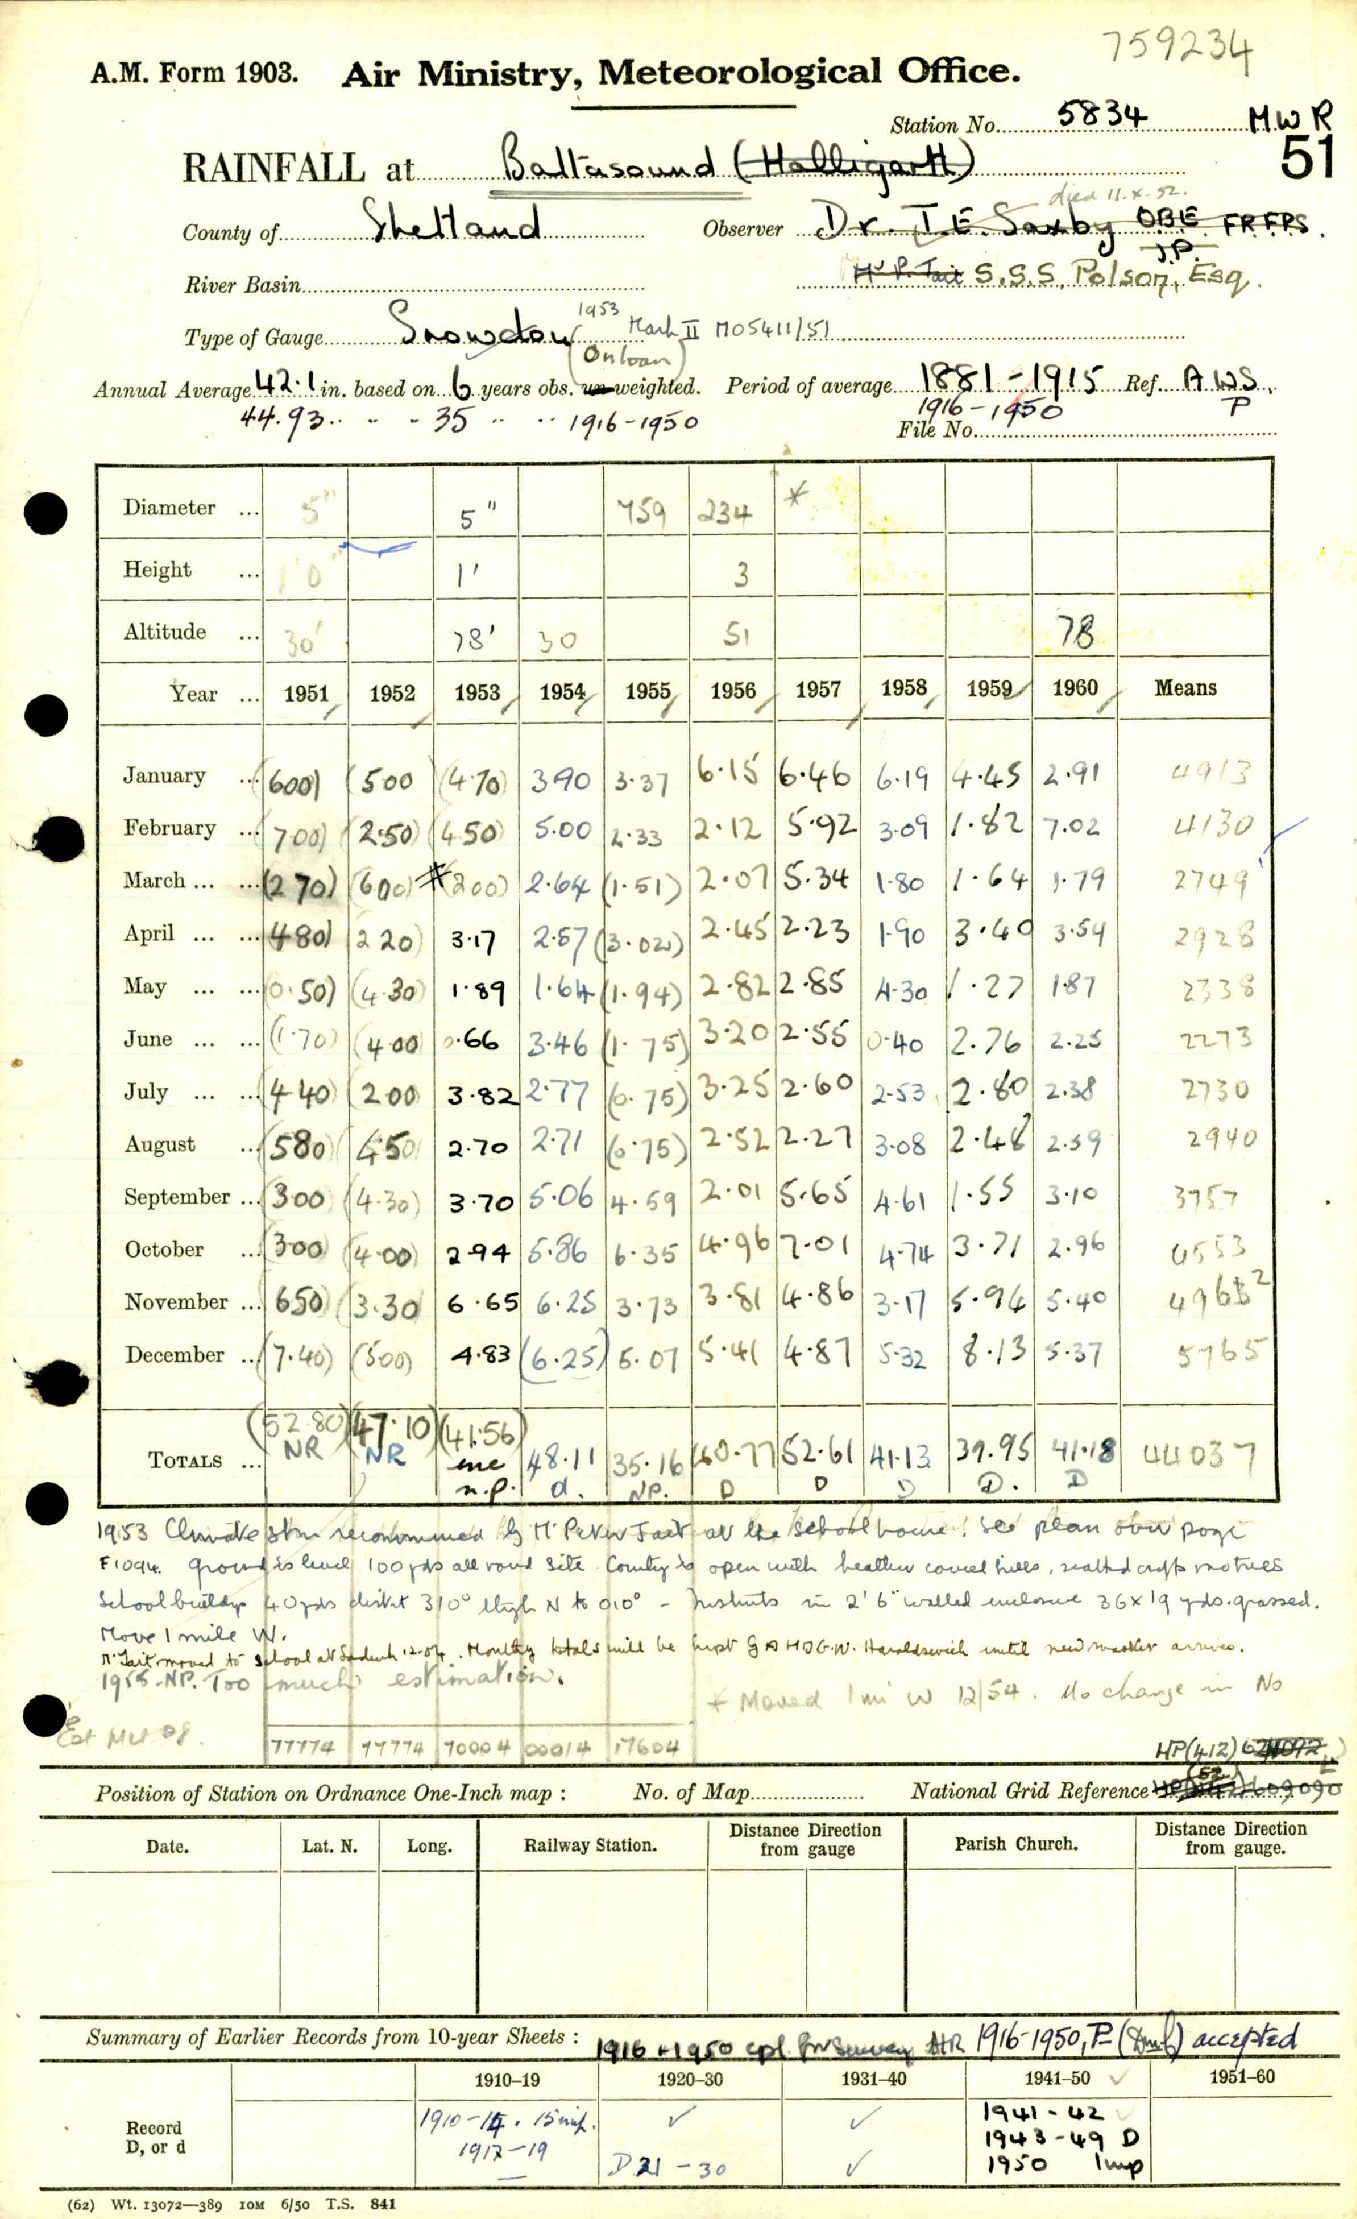 759234
A.M. Form 1903. Air Ministry, Meteorological Office.
Station No. 5834 MWR
51
RAINFALL at Baltasound (Halligarth)
died 11.X.52.
County of Shetland Observer Dr. T. E. Saxby OBE FRFPS.
J.P.
River Basin Mr P. Tait S.S.S. Polson, Esq.
Type of Gauge Snowdon 1953 Mark II MO5411/51
(On loan)
Annual Average 42.1 in. based on 6 years obs. un-weighted. Period of average 1881-1915 Ref. AWS.
44.93 .. .. - 35 .. .. 1916-1950 1916-1950 P
File No.
Diameter ... 5" 5" 759 234 *
Height ... 1'0" 1' 3
Altitude ... 30' 78' 30 51 78
Year ... 1951 1952 1953 1954 1955 1956 1957 1958 1959 1960 Means
January ... (600) (500) (4.70) 3.90 3.37 6.15 6.46 6.19 4.45 2.91 4913
February ... (700) (2.50) (4.50) 5.00 2.33 2.12 5.92 3.09 1.82 7.02 4130
March ... ... (270) (600) (200) 2.64 (1.51) 2.07 5.34 1.80 1.64 1.79 2749
April ... ... (480) (220) 3.17 2.57 (3.02) 2.45 2.23 1.90 3.40 3.54 2928
May ... ... (0.50) (4.30) 1.89 1.64 (1.94) 2.82 2.85 4.30 1.27 1.87 2338
June ... ... (1.70) (4.00) 0.66 3.46 (1.75) 3.20 2.55 0.40 2.76 2.25 2273
July ... ... (4.40) (200) 3.82 2.77 (0.75) 3.25 2.60 2.53 2.80 2.38 2730
August ... (580) (4.50) 2.70 2.71 (0.75) 2.52 2.27 3.08 2.48 2.59 2940
September ... (300) (4.30) 3.70 5.06 4.59 2.01 5.65 4.61 1.55 3.10 3757
October ... (300) (4.00) 2.94 5.86 6.35 4.96 7.01 4.74 3.71 2.96 4553
November ... (650) (3.30) 6.65 6.25 3.73 3.81 4.86 3.17 5.94 5.40 4962
December ... (7.40) (500) 4.83 (6.25) 5.07 5.41 4.87 5.32 8.13 5.37 5765
TOTALS ... (52.80) (47.10) (41.56) 48.11 35.16 40.77 52.61 41.13 39.95 41.18 44037
NR NR inc n.p. d. NP. D D D D. D
1953 Climate stn recommenced by Mr Peter Tait at the School house. See plan over page
F1094. ground is level 100 yds all round site. Country is open with heather covered hills, scattered crofts no trees
School buildings 40 yds distant 310° through N to 010° - Instruments in 2'6" walled enclosure 36 x 19 yds. grassed.
Move 1 mile W.
Mr Tait moved to School at . Monthly totals will be kept by Haroldswick until new master arrives.
1955 - NP. Too much estimation.
* Moved 1 mi W 12/54. No change in No
Est Met Of.
77774 77774 70004 00014 17604
HP (412)
Position of Station on Ordnance One-Inch map : No. of Map National Grid Reference 609090
Date. Lat. N. Long. Railway Station. Distance from gauge Direction Parish Church. Distance from gauge. Direction
Summary of Earlier Records from 10-year Sheets : 1916-1950 cpl. for Survey HR 1916-1950, P accepted
1910–19 1920–30 1931–40 1941–50 ✓ 1951–60
Record D, or d
1910-14. 15 inf. ✓ ✓ 1941-42
1917-19 1943-49 D
D 21-30 ✓ 1950 Imp
(62) Wt. 13072—389 10M 6/50 T.S. 841